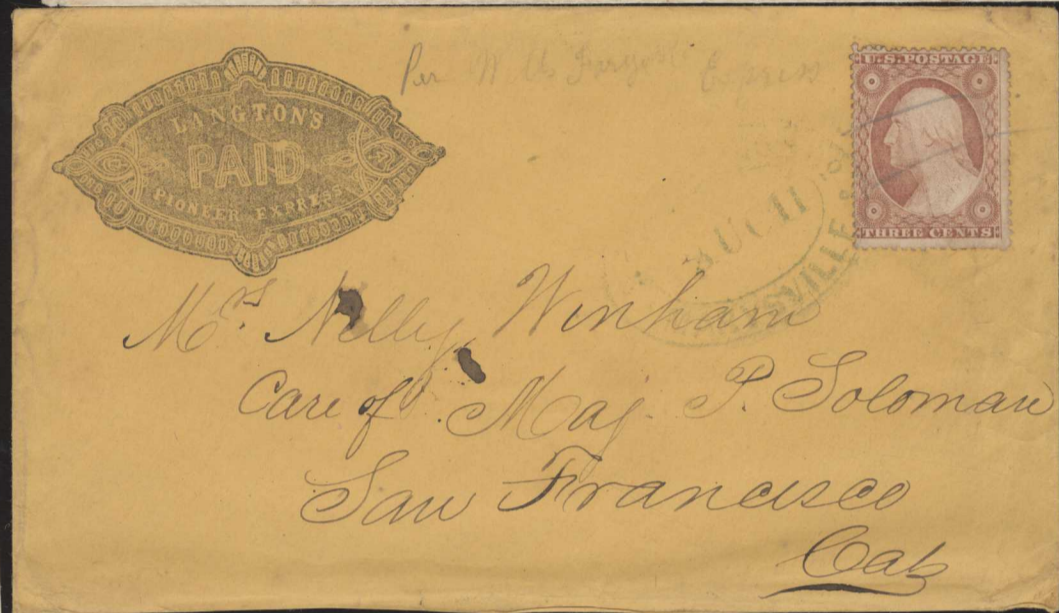 LANGTON'S
PAID
PIONEER EXPRESS
Per W Express
U.S. POSTAGE
THREE CENTS
AUG 11
Mrs. Nelly Winham
Care of Maj. P. Soloman
San Francisco
Cal